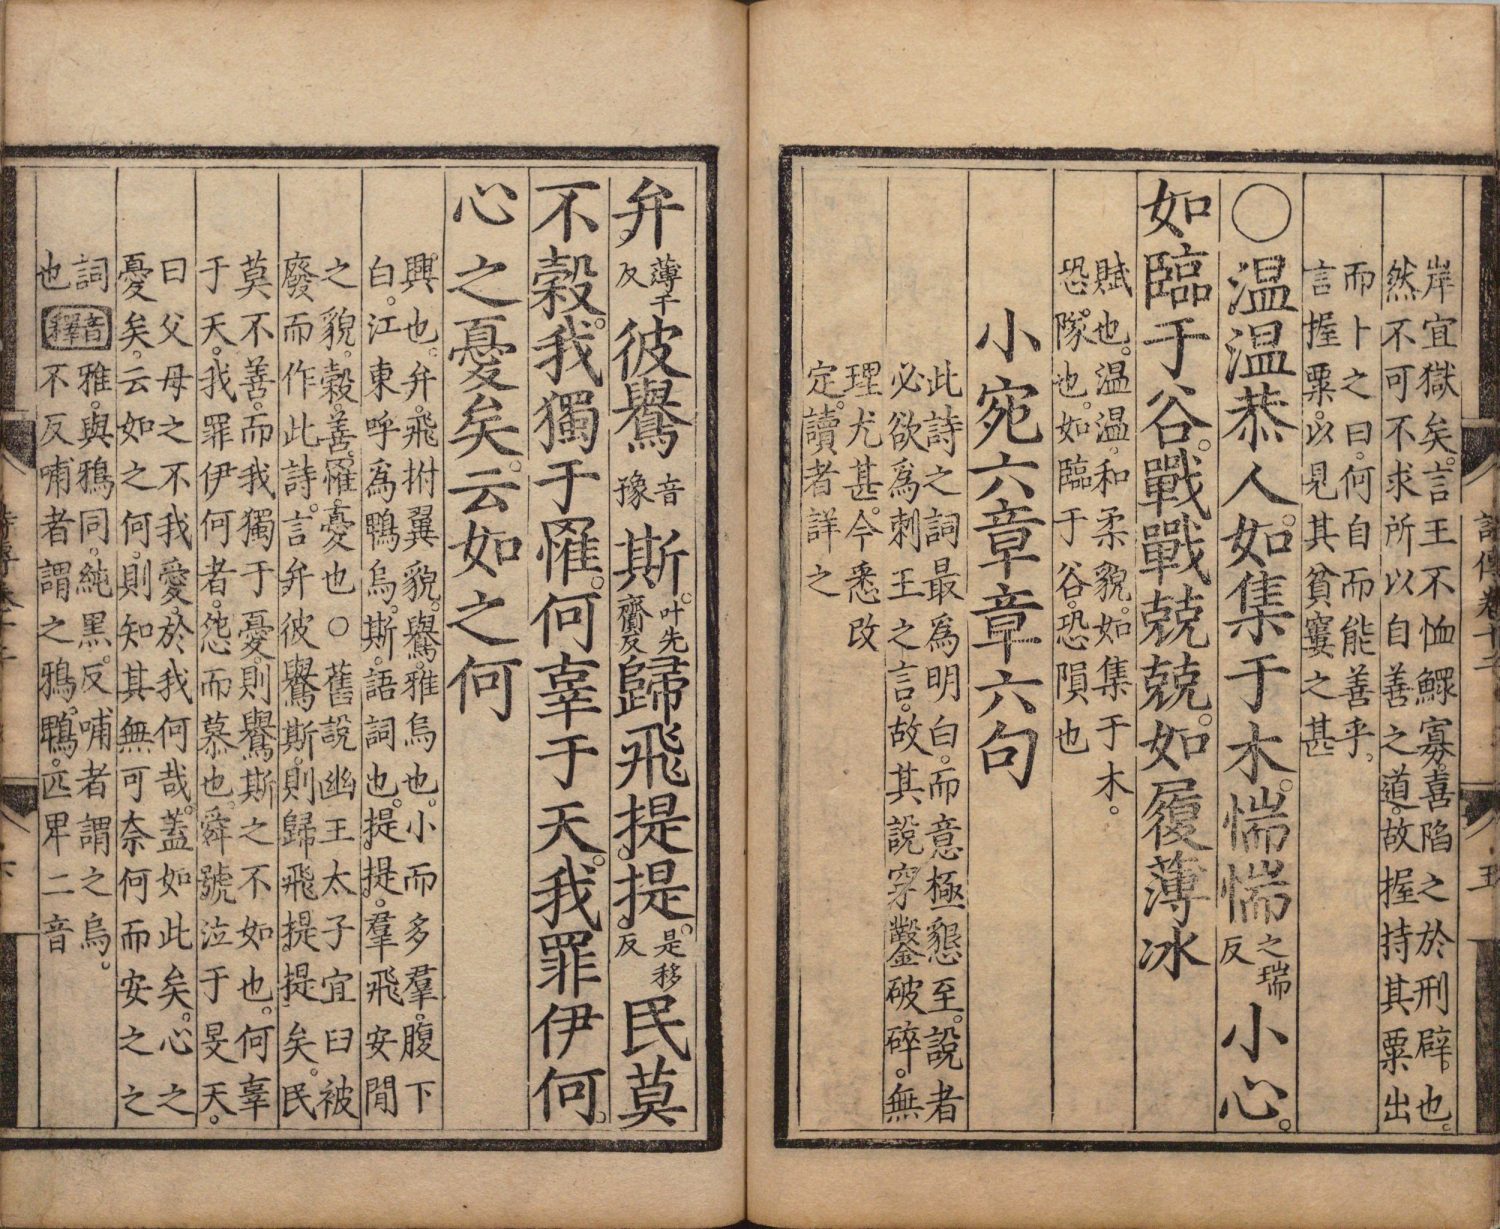 岸宜獄矣言王不恤鰥寡喜陷之於刑辟也
然不可不求所以自善之道故握持其粟出
而卜之曰何自而能善乎
言握粟以見其貧窶之甚
○温温恭人如集于木惴惴之瑞反小心
如臨于谷戰戰兢兢如履薄冰
賦也温温和柔貌如集于木
恐隊也如臨于谷恐隕也
小宛六章章六句
此詩之詞最為明白而意極懇至說者
必欲為刺王之言故其說穿鑿破碎無
理尤甚今悉改
定讀者詳之
弁薄干反彼鸒音豫斯叶先齎反歸飛提提是移反民莫
不穀我獨于罹何辜于天我罪伊何
心之憂矣云如之何
興也弁飛拊翼貌鸒雅烏也小而多羣腹下
白江東呼為鵯烏斯語詞也提提羣飛安閒
之貌穀善罹憂也○舊說幽王太子宜臼被
廢而作此詩言弁彼鸒斯則歸飛提提矣民
莫不善而我獨于憂則鸒斯之不如也何辜
于天我罪伊何者怨而慕也舜號泣于旻天
曰父母之不我愛於我何哉蓋如此矣心之
憂矣云如之何則知其無可奈何而安之之
詞
也
音釋
雅與鴉同純黑反哺者謂之烏
不反哺者謂之鴉鵯匹卑二音